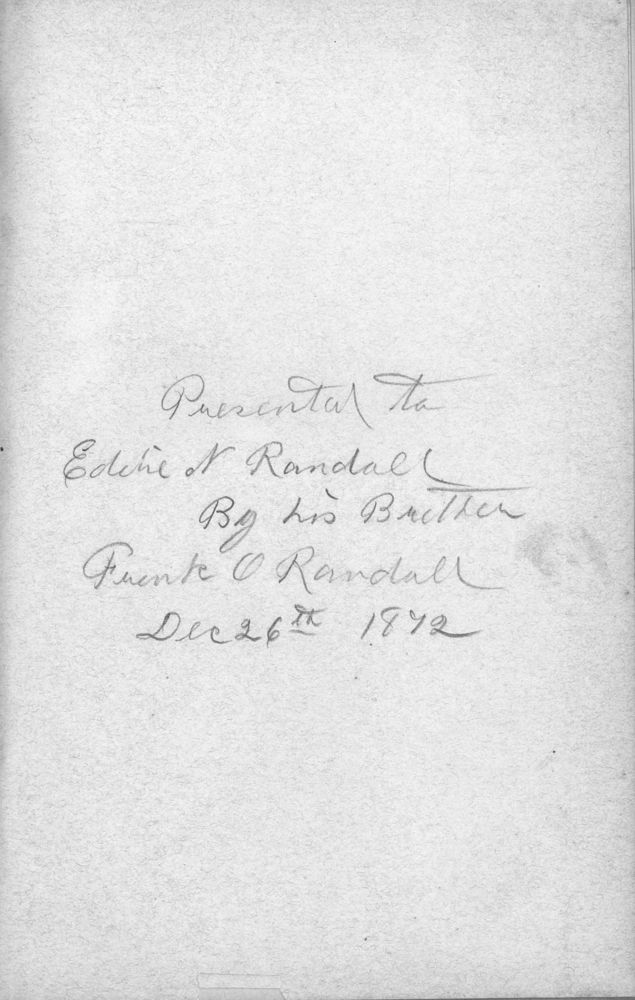 Presented to
Eddie N Randall
By his Brother
Frank O Randall
Dec 26th 1872